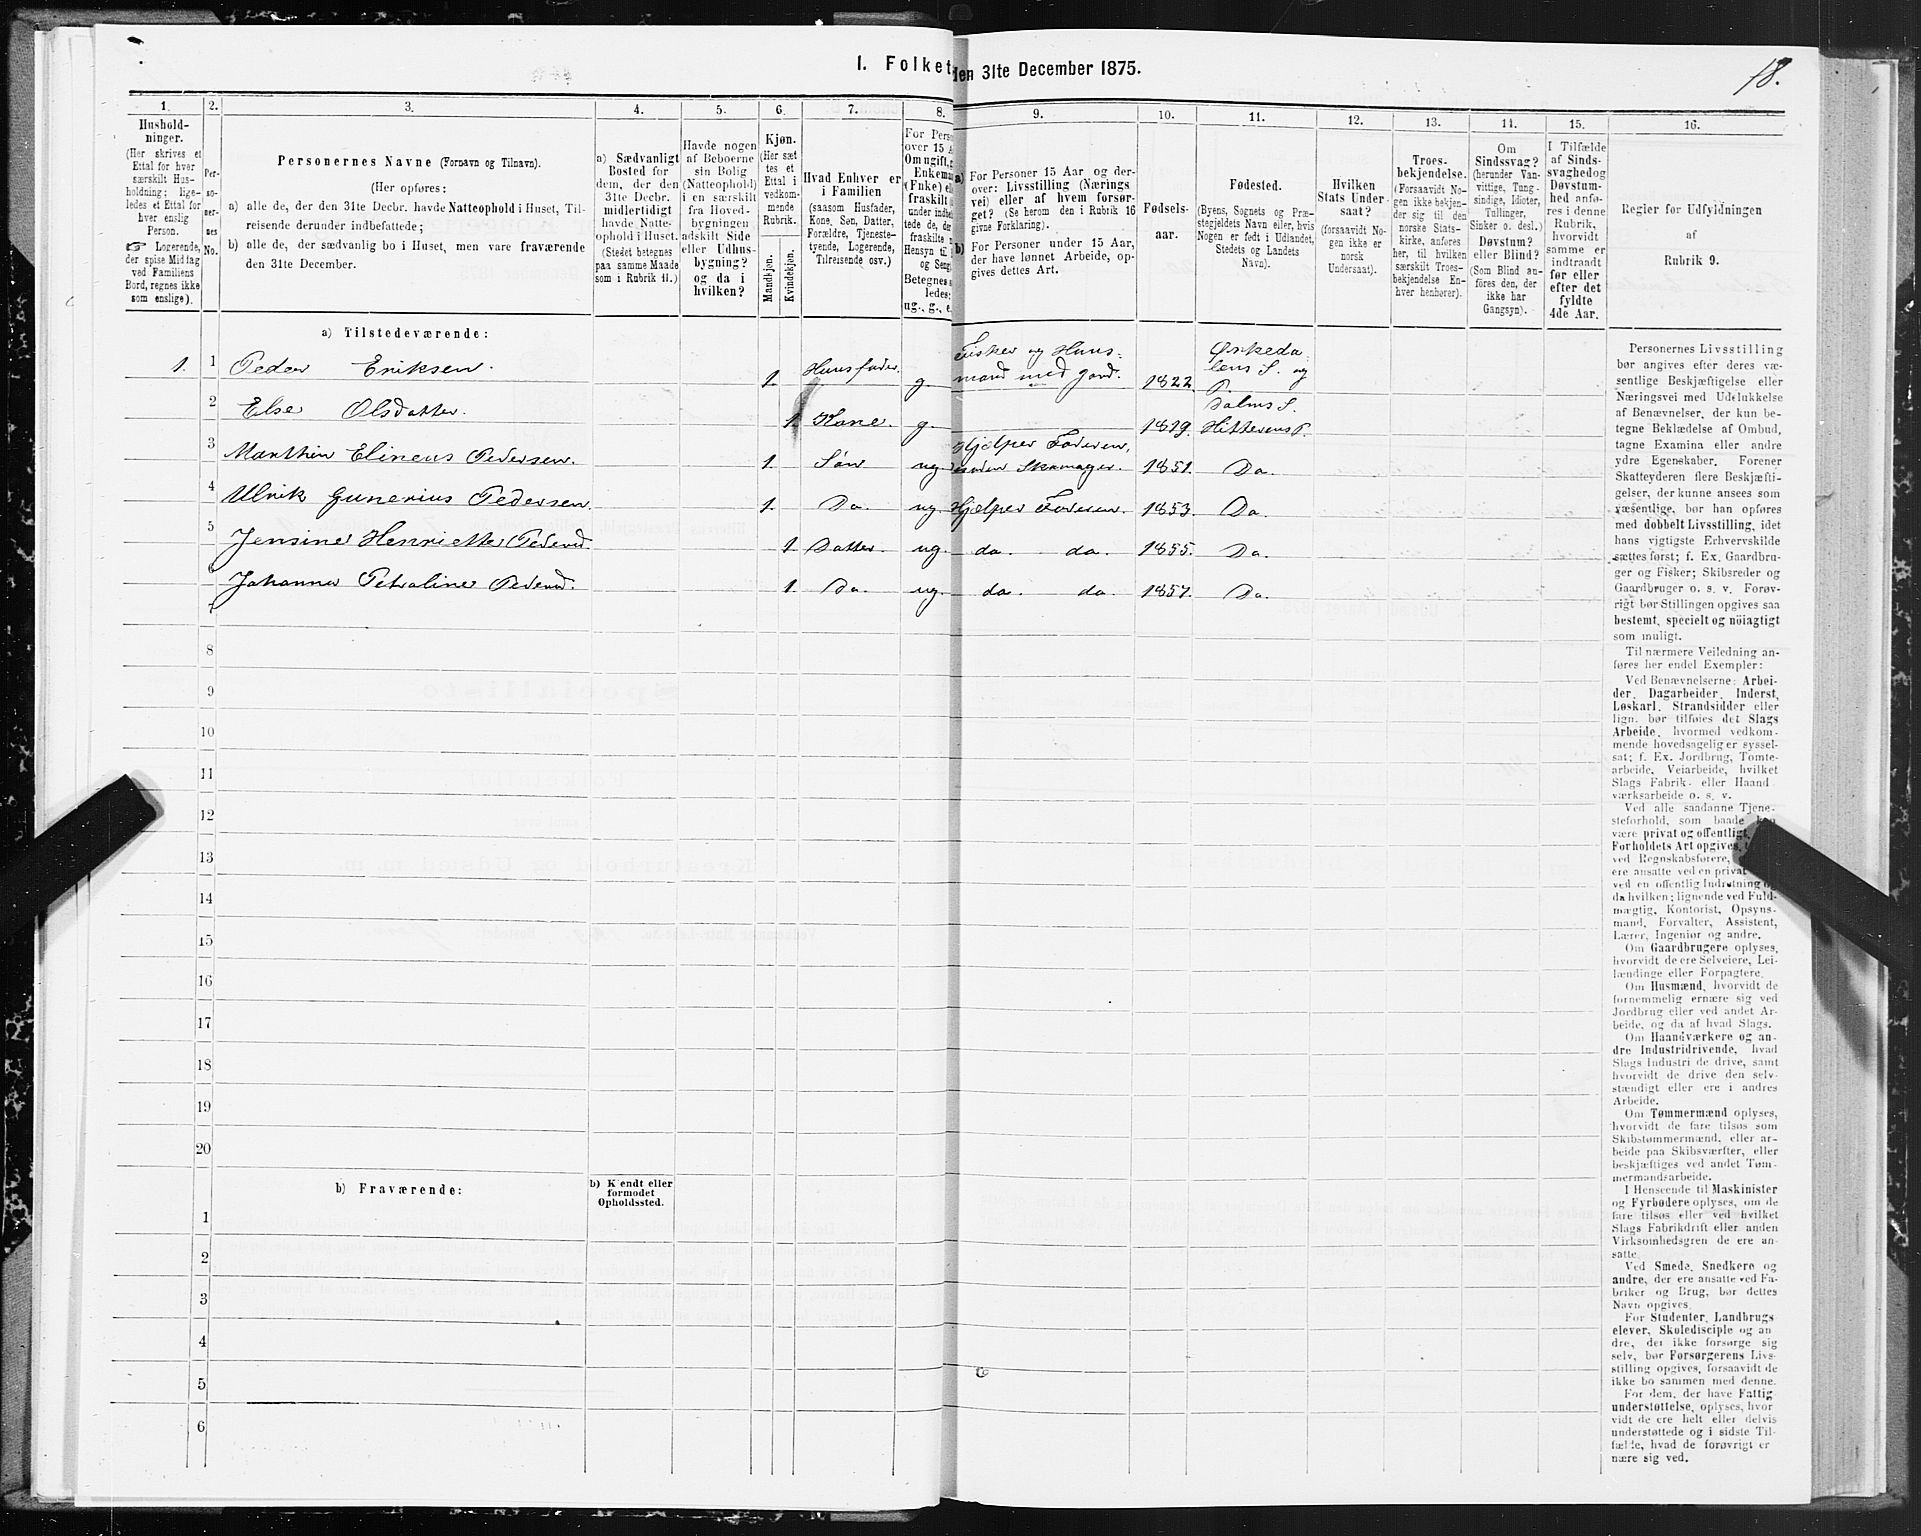 I. Folket den 31te December 1875.
18.
1. 2. 3. 4. 5. 6. 7. 8. 9. 10. 11. 12. 13. 14. 15. 16.
Hushold-
ninger.
(Her skrives et
Ettal for hver
særskilt Hus-
holdning; lige-
ledes et Ettal for
hver enslig
Person.
☞ Logerende,
der spise Middag
ved Familiens
Bord, regnes ikke
som enslige).
Per-
so-
ner-
nes
No.
Personernes Navne (Fornavn og Tilnavn).
(Her opføres:
a) alle de, der den 31te Decbr. havde Natteophold i Huset, Til-
reisende derunder indbefattede;
b) alle de, der sædvanlig bo i Huset, men vare fraværende
den 31te December.
a) Sædvanligt
Bosted for
dem, der den
31te Decbr.
midlertidigt
havde Natte-
ophold i Huset.
(Stedet betegnes
paa samme Maade
som i Rubrik 11.)
Havde nogen
af Beboerne
sin Bolig
(Natteophold)
i en særskilt
fra Hoved-
bygningen
adskilt Side
eller Udhus-
bygning?
og da i
hvilken?
Kjøn.
(Her sæt
tes et
Ettal i
vedkom-
mende
Rubrik.
Mandkjøn.
Kvindekjøn.
Hvad Enhver er
i Familien
(saasom Husfader,
Kone, Søn, Datter,
Forældre, Tjeneste-
tyende, Logerende,
Tilreisende osv.)
For Pers
over 15 A
Om ugift, g
Enkema
(Fuke) e
fraskilt
under indb
tede de, der
fraskilte
Hensyn til
og Seng
Betegnes
ledes:
ug., g., e.
a) For Personer 15 Aar og der-
over: Livsstilling (Nærings
vei) eller af hvem forsør-
get? (Se herom den i Rubrik 16
givne Forklaring).
b) For Personer under 15 Aar,
der have lønnet Arbeide, op-
gives dettes Art.
Fødsels-
aar.
Fødested.
(Byens, Sognets og Præ-
stegjeldets Navn eller, hvis
Nogen er født i Udlandet,
Stedets og Landets
Navn).
Hvilken
Stats Under
saat?
(forsaavidt No-
gen ikke er
norsk
Undersaat).
Troes-
bekjendelse.
(Forsaavidt No-
gen ikke bekjen-
der sig til den
norske Stats-
kirke, anføres
her, til hvilken
særskilt Troes-
bekjendelse En-
hver henhører).
Om
Sindssvag?
(herunder Van-
vittige, Tung-
sindige, Idioter,
Tullinger,
Sinker o. desl.)
Døvstum?
eller Blind?
(Som Blind an-
føres den, der
ikke har
Gangsyn).
I Tilfælde
af Sinds-
svaghed og
Døvstum-
hed anfø-
res i denne
Rubrik,
hvorvidt
samme er
indtraadt
før eller
efter det
fyldte
4de Aar.
Regler for Udfyldningen
af
Rubrik 9.
a) Tilstedeværende:
1. 1 Peder Eriksen. 1. Huusfader. g. Fisker og Huus-
mand med Jord. 1822. Ørkeda-
lens S. og
P.
2 Else Olsdatter. 1. Kone. g. 1819. Dalms S.
Hitterens P.
3 Marthin Elineus Pedersen. 1. Søn ug Hjelper Faderen,
desuden Skomager. 1851. Do.
4 Ulrik Gunerius Pedersen. 1. Do. ug Hjelper Faderen. 1853. Do.
5 Jensine Henriette Pedersd. 1. Datter. ug. do. do. 1855. Do.
6 Johanne Petroline Pedersd. 1. Do. ug. do. do. 1857. Do.
7
8
9
10
11
12
13
14
15
16
17
18
19
20
b) Fraværende:
b) Kjendt eller
formodet
Opholdssted.
1
2
3
4
5
6
Personernes Livsstilling
bør angives efter deres væ-
sentlige Beskjæftigelse eller
Næringsvei med Udelukkelse
af Benævnelser, der kun be-
tegne Beklædelse af Ombud,
tagne Examina eller andre
ydre Egenskaber. Forener
Skatteyderen flere Beskjæfti-
gelser, der kunne ansees som
væsentlige, bør han opføres
med dobbelt Livsstilling, idet
hans vigtigste Erhvervskilde
sættes først; f. Ex. Gaardbru-
ger og Fisker; Skibsreder og
Gaardbruger o. s. v. Forøv-
rigt bør Stillingen opgives saa
bestemt, specielt og nöiagtigt
som muligt.
Til nærmere Veiledning an-
føres her endel Exempler:
Ved Benævnelserne: Arbei-
der, Dagarbeider, Inderst,
Løskarl, Strandsidder eller
lign. bør tilføies det Slags
Arbeide, hvormed vedkom-
mende hovedsagelig er syssel-
sat; f. Ex. Jordbrug, Tomte-
arbeide, Veiarbeide, hvilket
Slags Fabrik- eller Haand
værksarbeide o. s. v.
Ved alle saadanne Tjene-
steforhold, som baade kan
være privat og offentligt,
Forholdets Art opgives,
ved Regnskabsførere,
ere ansatte ved en privat
ved en offentlig Indretning og
da hvilken; lignende ved Fuld-
mægtig, Kontorist, Opsyns-
mand, Forvalter, Assistent,
Lærer, Ingeniør og andre.
Om Gaardbrugere oplyses,
hvorvidt de ere Selveiere, Lei-
lændinge eller Forpagtere.
Om Husmænd, hvorvidt de
fornemmelig ernære sig ved
Jordbrug eller ved andet Ar-
beide, og da af hvad Slags.
Om Haandværkere og an-
dre Industridrivende, hvad
Slags Industri de drive, samt
hvorvidt de drive den selv-
stændigt eller ere i andres
Arbeide.
Om Tømmermænd oplyses,
hvorvidt de fare tilsøs som
Skibstømmermænd, eller ar-
beide paa Skibsværfter, eller
beskjæftiges ved andet Tøm-
mermandsarbeide.
I Henseende til Maskinister
og Fyrbødere oplyses, om de
fare tilsøs eller ved hvilket
Slags Fabrikdrift eller anden
Virksomhedsgren de ere an-
satte.
Ved Smede, Snedkere og
andre, der ere ansatte ved Fa-
briker og Brug, bør dettes
Navn opgives.
For Studenter, Landbrugs
elever, Skoledisciple og an
dre, der ikke forsørge sig
selv, bør Forsørgerens Livs-
stilling opgives, forsaavidt de
ikke bo sammen med denne.
For dem, der have Fattig
understøttelse, oplyses, hvor
vidt de ere helt eller delvis
understøttede og i sidste Til-
fælde, hvad de forøvrigt er
nære sig ved.